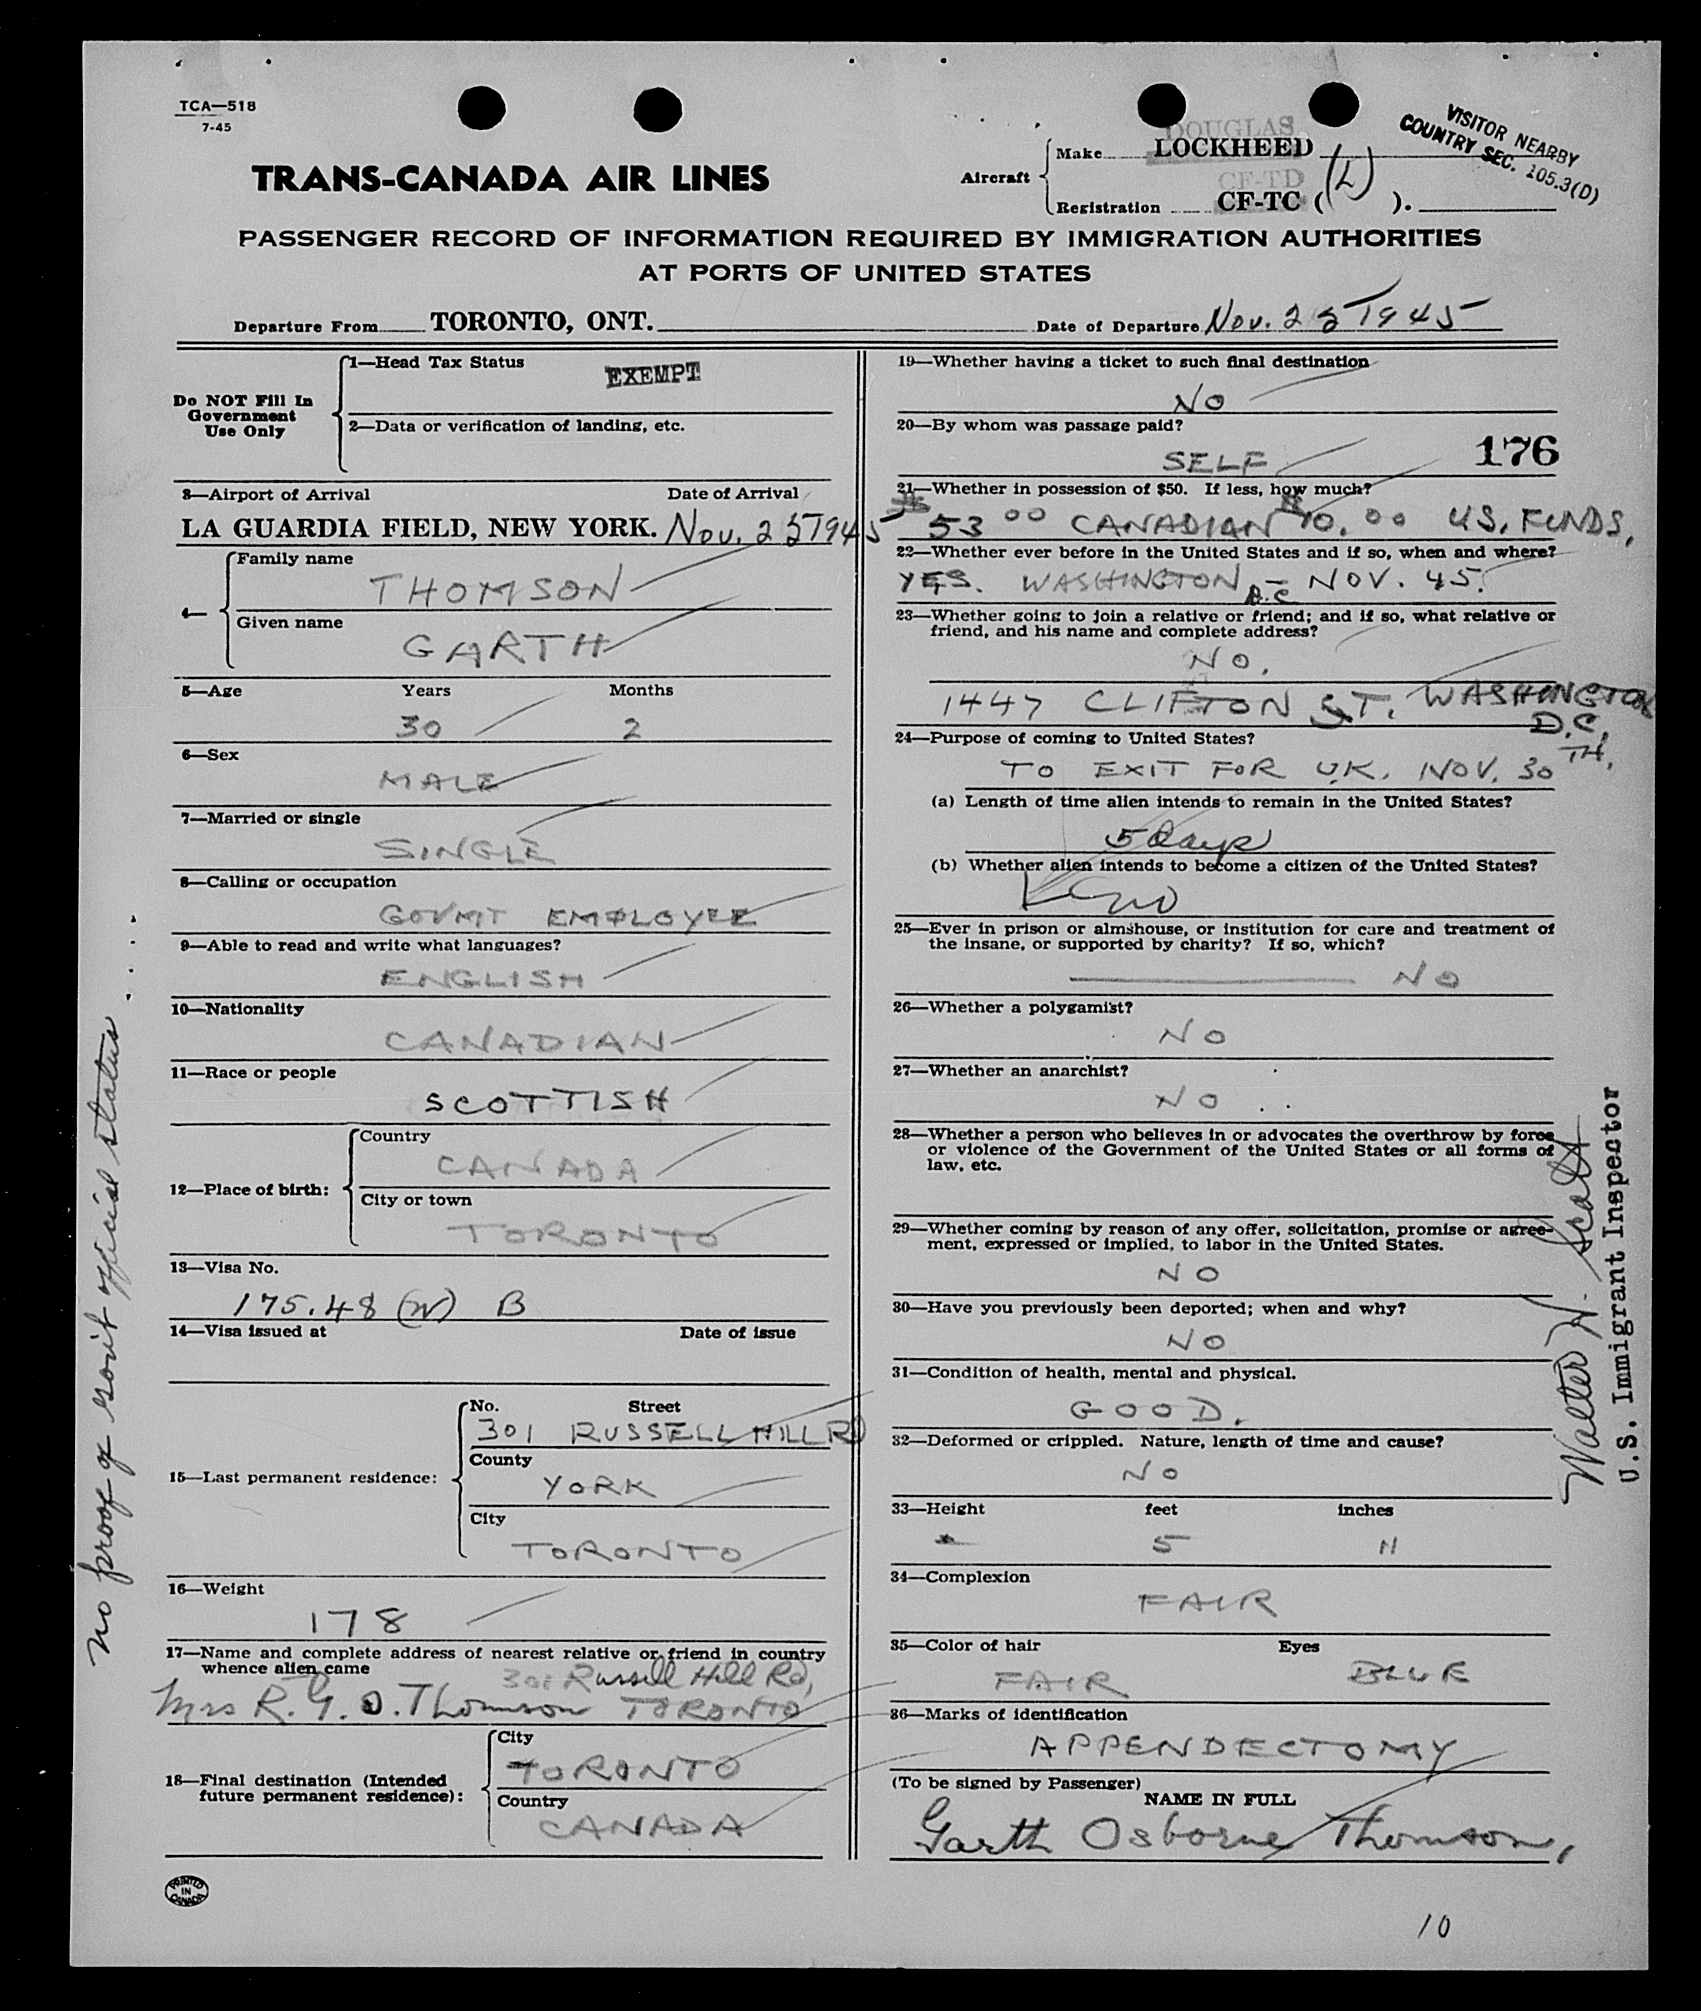 TCA—518
7-45
VISITOR NEARBY
COUNTRY SEC. 105.3(D)
TRANS-CANADA AIR LINES
DOUGLAS
Aircraft Make LOCKHEED
CF-TD
Registration CF-TC (L).
PASSENGER RECORD OF INFORMATION REQUIRED BY IMMIGRATION AUTHORITIES
AT PORTS OF UNITED STATES
Departure From TORONTO, ONT. Date of Departure Nov. 25 1945
Do NOT Fill In
Government
Use Only
1—Head Tax Status
EXEMPT
2—Data or verification of landing, etc.
3—Airport of Arrival Date of Arrival
LA GUARDIA FIELD, NEW YORK. Nov. 25 1945
4— Family name
THOMSON
Given name
GARTH
5—Age Years Months
30 2
6—Sex
MALE
7—Married or single
SINGLE
8—Calling or occupation
GOVMT EMPLOYEE
9—Able to read and write what languages?
ENGLISH
10—Nationality
CANADIAN
11—Race or people
SCOTTISH
12—Place of birth: Country
CANADA
City or town
TORONTO
13—Visa No.
175.48 (W) B
14—Visa issued at Date of issue
15—Last permanent residence: No. Street
301 RUSSELL HILL RD
County
YORK
City
TORONTO
16—Weight
178
17—Name and complete address of nearest relative or friend in country
whence alien came
301 Russell Hill Rd,
Mrs R. G. O. Thomson TORONTO
18—Final destination (Intended
future permanent residence):
City
TORONTO
Country
CANADA
PRINTED
IN
CANADA
19—Whether having a ticket to such final destination
NO
20—By whom was passage paid?
SELF 176
21—Whether in possession of $50. If less, how much?
53 00 CANADIAN 10.00 US. FUNDS,
22—Whether ever before in the United States and if so, when and where?
YES. WASHINGTON D.C. — NOV. 45.
23—Whether going to join a relative or friend; and if so, what relative or
friend, and his name and complete address?
NO.
1447 CLIFTON ST. WASHINGTON
D.C.
24—Purpose of coming to United States?
TO EXIT FOR U.K. NOV. 30 TH.
(a) Length of time alien intends to remain in the United States?
5 days
(b) Whether alien intends to become a citizen of the United States?
no
25—Ever in prison or almshouse, or institution for care and treatment of
the insane, or supported by charity? If so, which?
NO
26—Whether a polygamist?
NO
27—Whether an anarchist?
NO
28—Whether a person who believes in or advocates the overthrow by force
or violence of the Government of the United States or all forms of
law, etc.
29—Whether coming by reason of any offer, solicitation, promise or agree-
ment, expressed or implied, to labor in the United States.
NO
30—Have you previously been deported; when and why?
NO
31—Condition of health, mental and physical.
GOOD.
32—Deformed or crippled. Nature, length of time and cause?
NO
33—Height feet inches
5 11
34—Complexion
FAIR
35—Color of hair Eyes
FAIR BLUE
36—Marks of identification
APPENDECTOMY
(To be signed by Passenger)
NAME IN FULL
Garth Osborne Thomson,
10
no proof of govt official status
Walter W. Scott
U.S. Immigrant Inspector